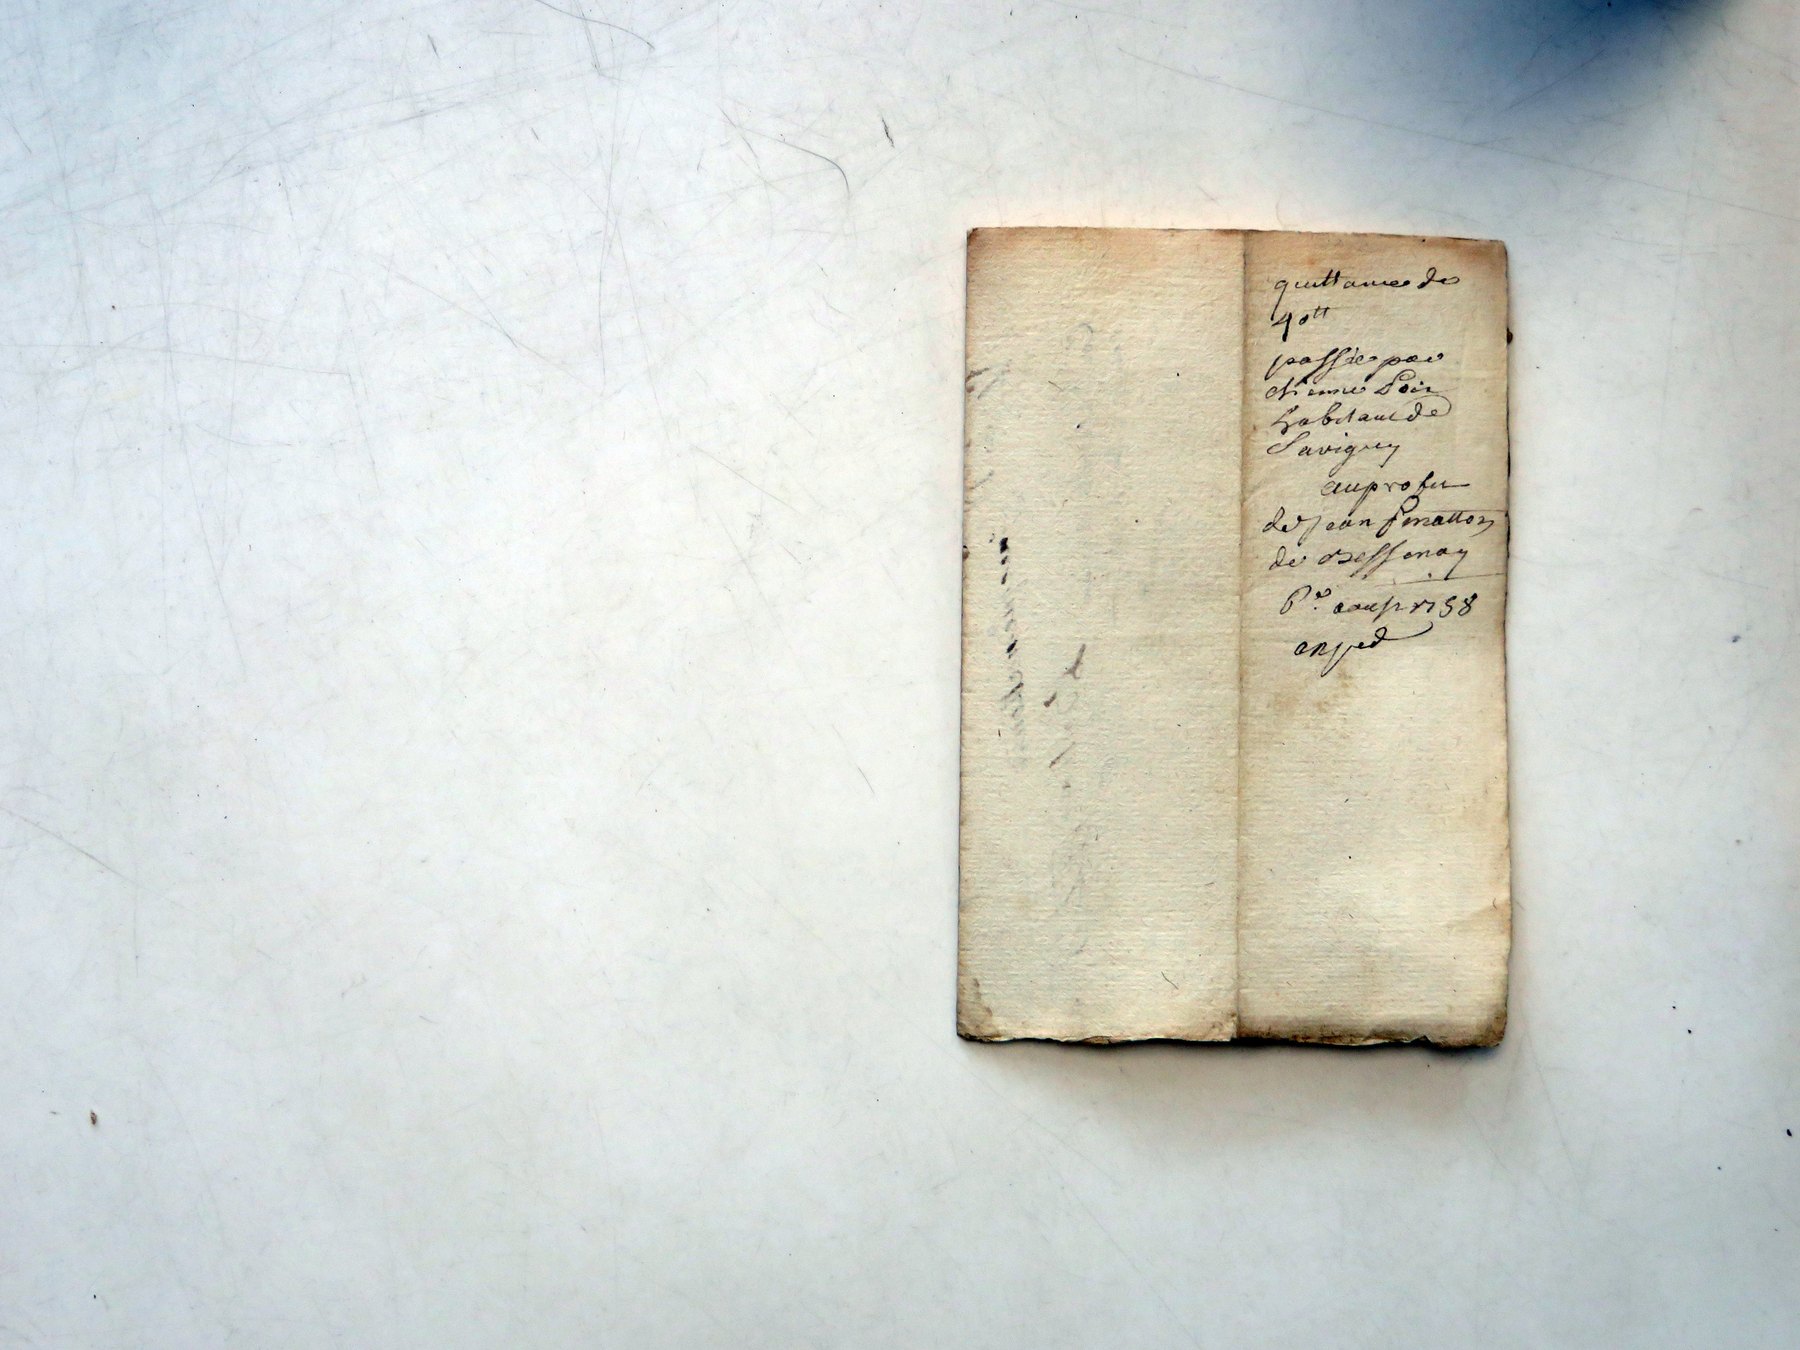 quittance de
40tt
passée par
etienne Poin
habitant de
Savigny
au profit
de jean
de Bessenay
Pr. aoust 1758
exped